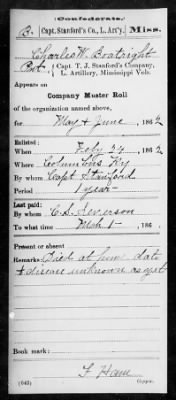 Confederate.
B. Capt. Stanford's Co., L. Art'y. Miss.
Charles W. Boatright
Pvt. Capt. T. J. Stanford's Company,
L. Artillery, Mississippi Vols.
Appears on
Company Muster Roll
of the organization named above,
for May & June, 1862
Enlisted:
When Feby 24, 1862
Where Columbus, Ky
By whom Capt Stanford
Period 1 year
Last paid:
By whom C. S. Severson
To what time Mch 1, 186
Present or absent
Remarks: Died at home date
& disease unknown as yet
Book mark:
(642) Copyist.